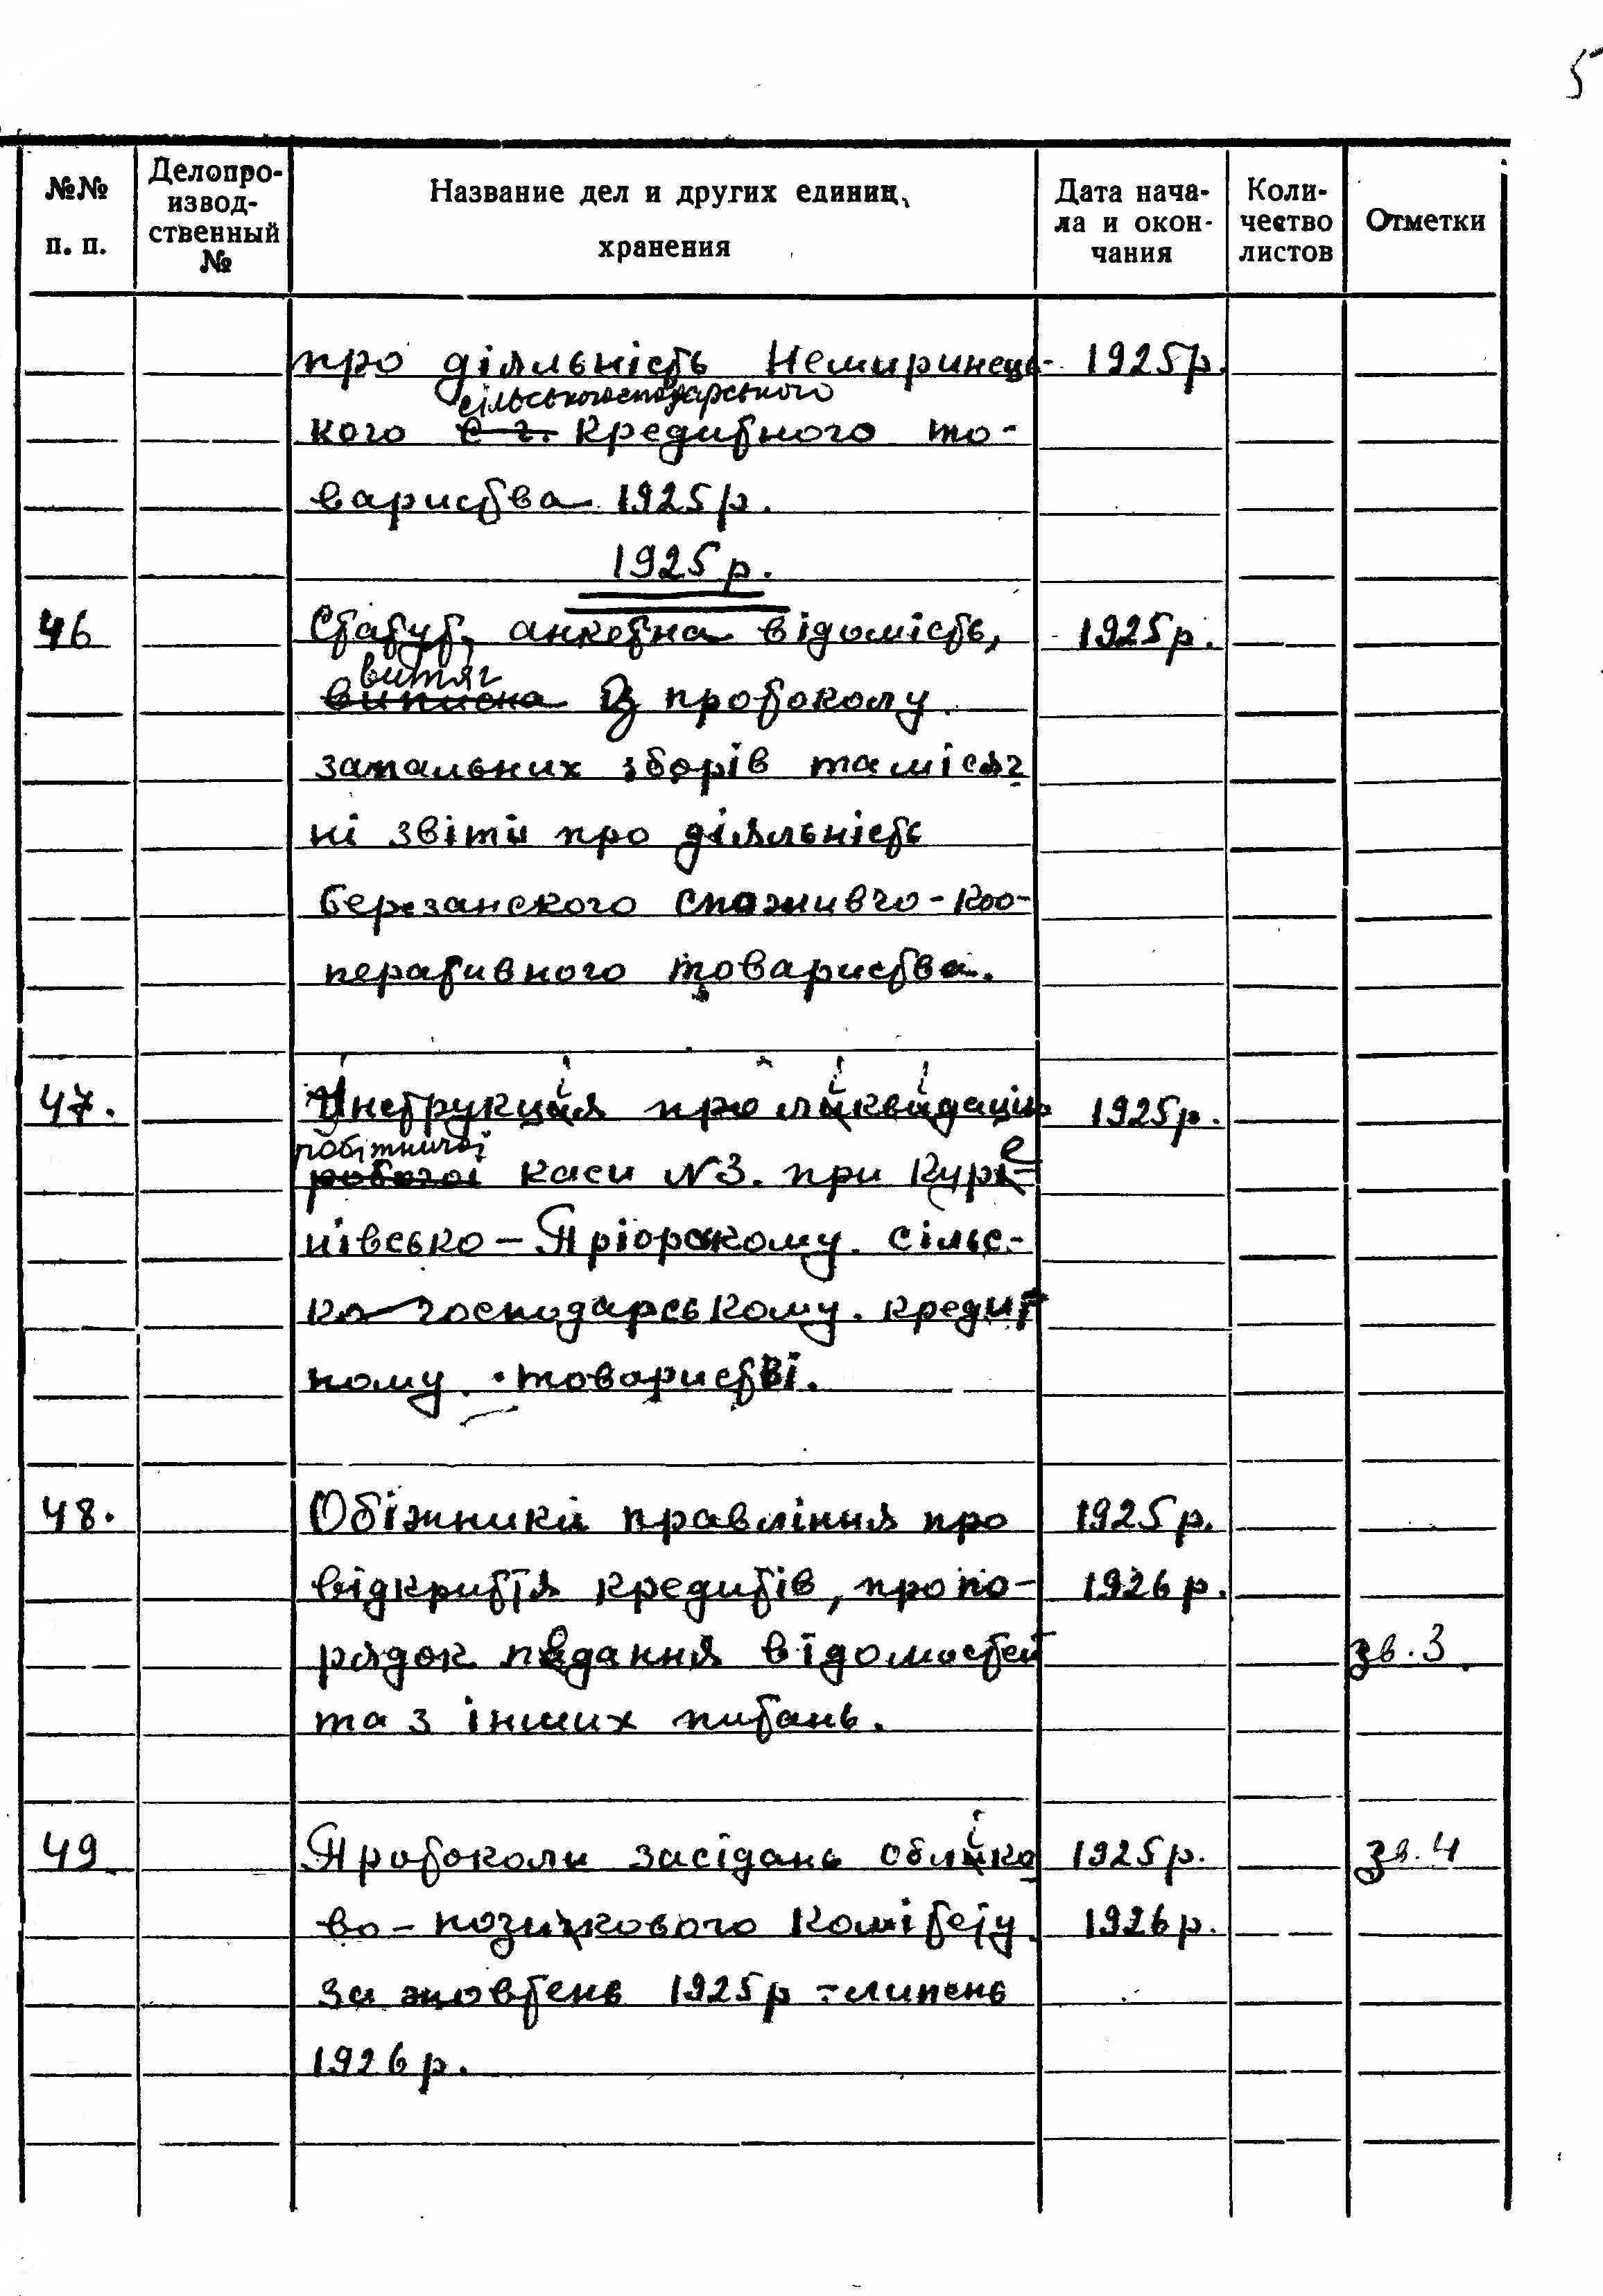 5
№№ п. п.
Делопро-
извод-
ственный
№
Название дел и других единиц
хранения
Дата нача-
ла и окон-
чания
Коли-
чество
листов
Отметки
про діяльність Немиринець- 1925р.
сільськогосподарського
кого с г. кредитного то-
вариства 1925р.
1925 р.
46 Статут, анкетна відомість, 1925р.
витяг
виписка із протоколу
загальних зборів та місяч
ні звіти про діяльність
березанского споживчо-коо-
перативного товариства.
47. Інструкція про ліквідацію 1925р.
робітничої
робочої каси №3. при Куре-
нівсько-Пріорскому сільс-
ко-господарському кредит
ному товаристві.
48. Обіжники правління про 1925р.
відкриття кредитів, про по- 1926р.
рядок подання відомостей зв. 3
та з інших питань.
49 Протоколи засідань обліко 1925р. зв. 4
во-позикового комітету 1926р.
за жовтень 1925р - липень
1926р.